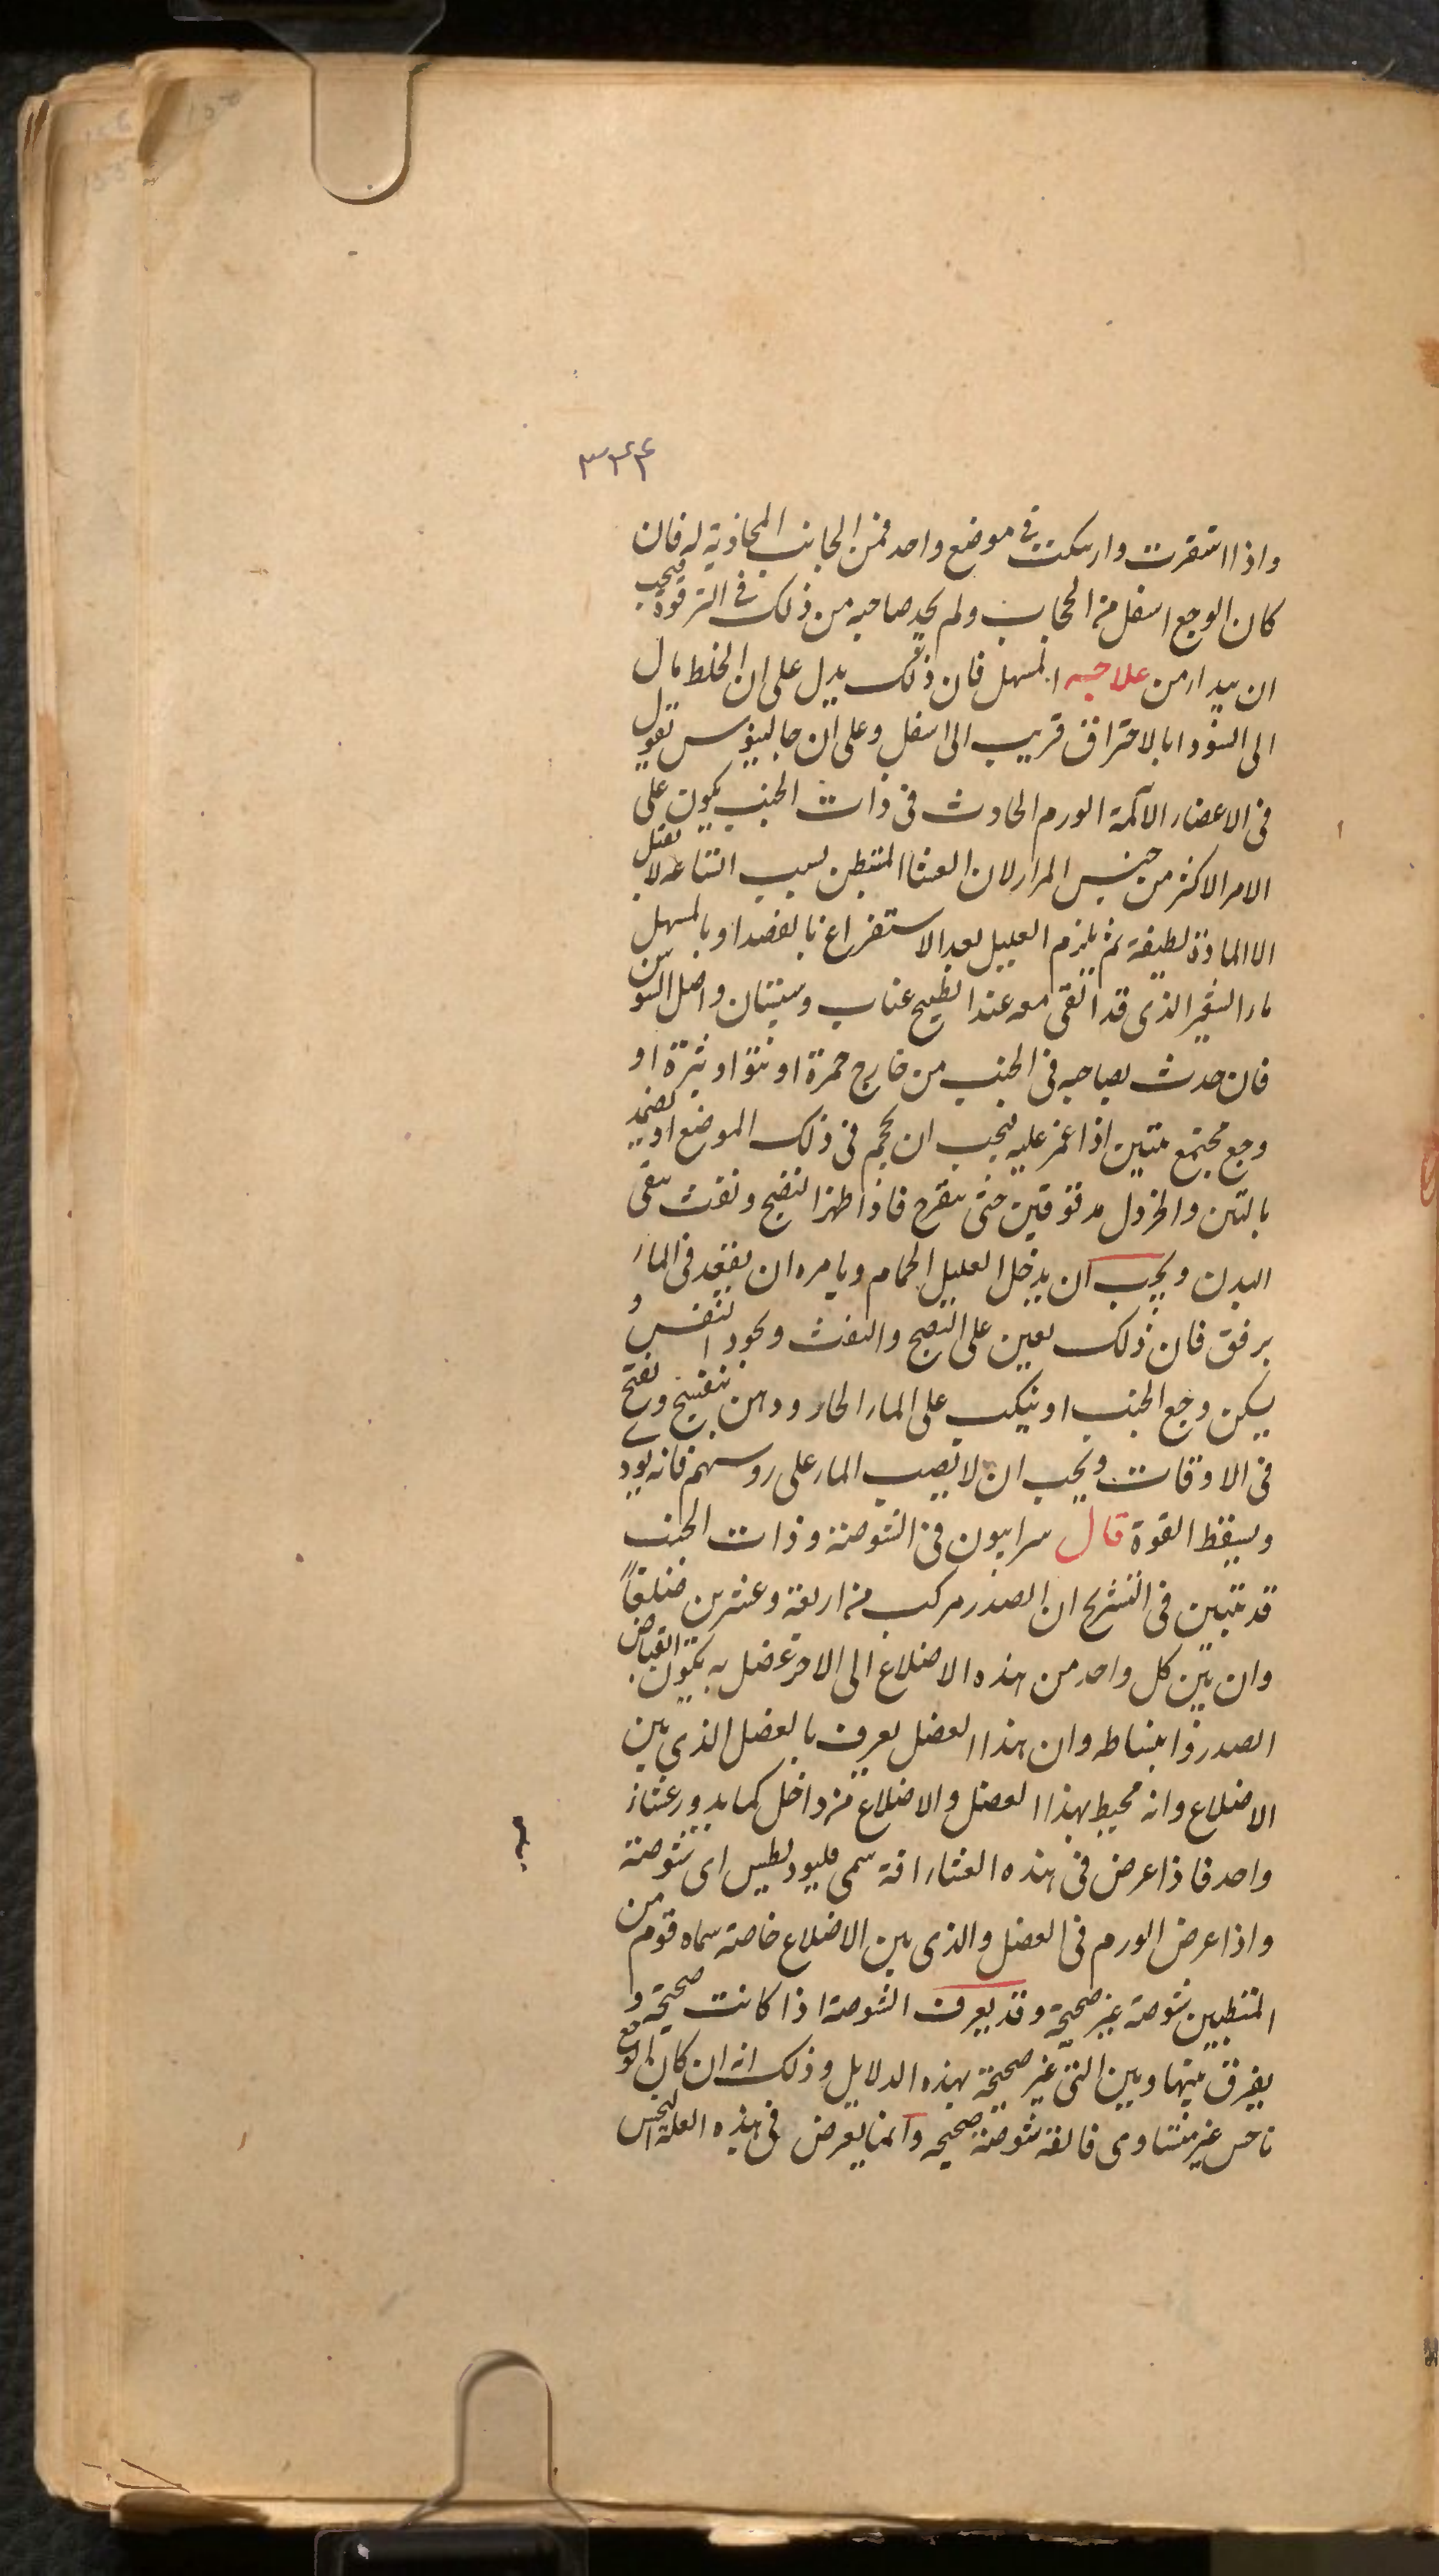 ٣٣٤
واذا استقرت وارتبكت فى موضع واحد فمن الجانب المحاذية له فان
كان الوجع اسفل من الحجاب ولم يجد صاحبه من ذلك فى الترقوة فيجب
ان يبدا من علاجه المسهل فان ذلك يدل على ان الخلط مال
الى السودا بالاحتراق قريب الى اسفل وعلى ان جالينوس تقول
فى الاعضاء الآلمة الورم الحادث فى ذات الجنب يكون على
الامر الاكثر من جنس المرار لان الغشا المستبطن لسبب امتناعه لا يقبل
الا المادة لطيفة ثم يلزم العليل بعد الاستفراغ بالفصد او بالمسهل
ماء الشعير الذى قد القى معه عند الطبخ عناب وسبستان واصل السوسن
فان حدث بصاحبه فى الجنب من خارج حمرة او نتؤ او بثرة او
وجع مجتمع يتبين اذا غمز عليه فيجب ان يحجم فى ذلك الموضع او يضمد
بالتين والخردل مدقوقين حتى يتقرح فاذا ظهر النضج ونفث ينقى
البدن ويجب ان يدخل العليل الحمام ويامره ان يقعد فى الماء
برفق فان ذلك يعين على النضج والنفث ويجود التنفس و
يسكن وجع الجنب او ينكب على الماء الحار ودهن بنفسج ويفتح
فى الاوقات ويجب ان لا يصب الماء على روسهم فانه يودى
ويسقط القوة قال سرابيون فى الشوصة وذات الجنب
قد تبين فى التشريح ان الصدر مركب من اربعة وعشرين ضلعاً
وان بين كل واحد من هذه الاضلاع الى الاخر عضل به يكون انقباض
الصدر وانبساطه وان هذا العضل يعرف بالعضل الذى بين
الاضلاع وانه محيط بهذا العضل والاضلاع من داخل كما يدور غشاء
واحد فاذا عرض فى هذه الغشاء افة سمى فليودلطيس اى شوصة
واذا عرض الورم فى العضل والذى بين الاضلاع خاصة سماه قوم من
المتطببين شوصة غير صحيحة وقد يعرف الشوصة اذا كانت صحيحة و
يفرق بينها وبين التى غير صحيحة بهذه الدلايل وذلك انه ان كان الوجع
ناخس غير متساوى فالعلة شوصة صحيحه وانما يعرض فى هذه العلة النخس